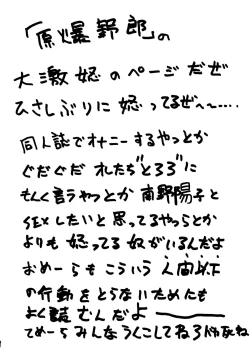 「原爆野郎」の
大激怒のページだぜ
ひさしぶりに怒ってるぜ〜〜....
同人誌でオナニーするやっとか
ぐだぐだ れたち"とろろ"に
もんく言うやっとか 南野陽子と
SEXしたいと思ってるやつらとか
よりも怒ってる奴がいるんだよ
おめーらもこういう人間以下
の行動をとらないためにも
よく読むんだよ――
てめーらみんなうんこしてねろ